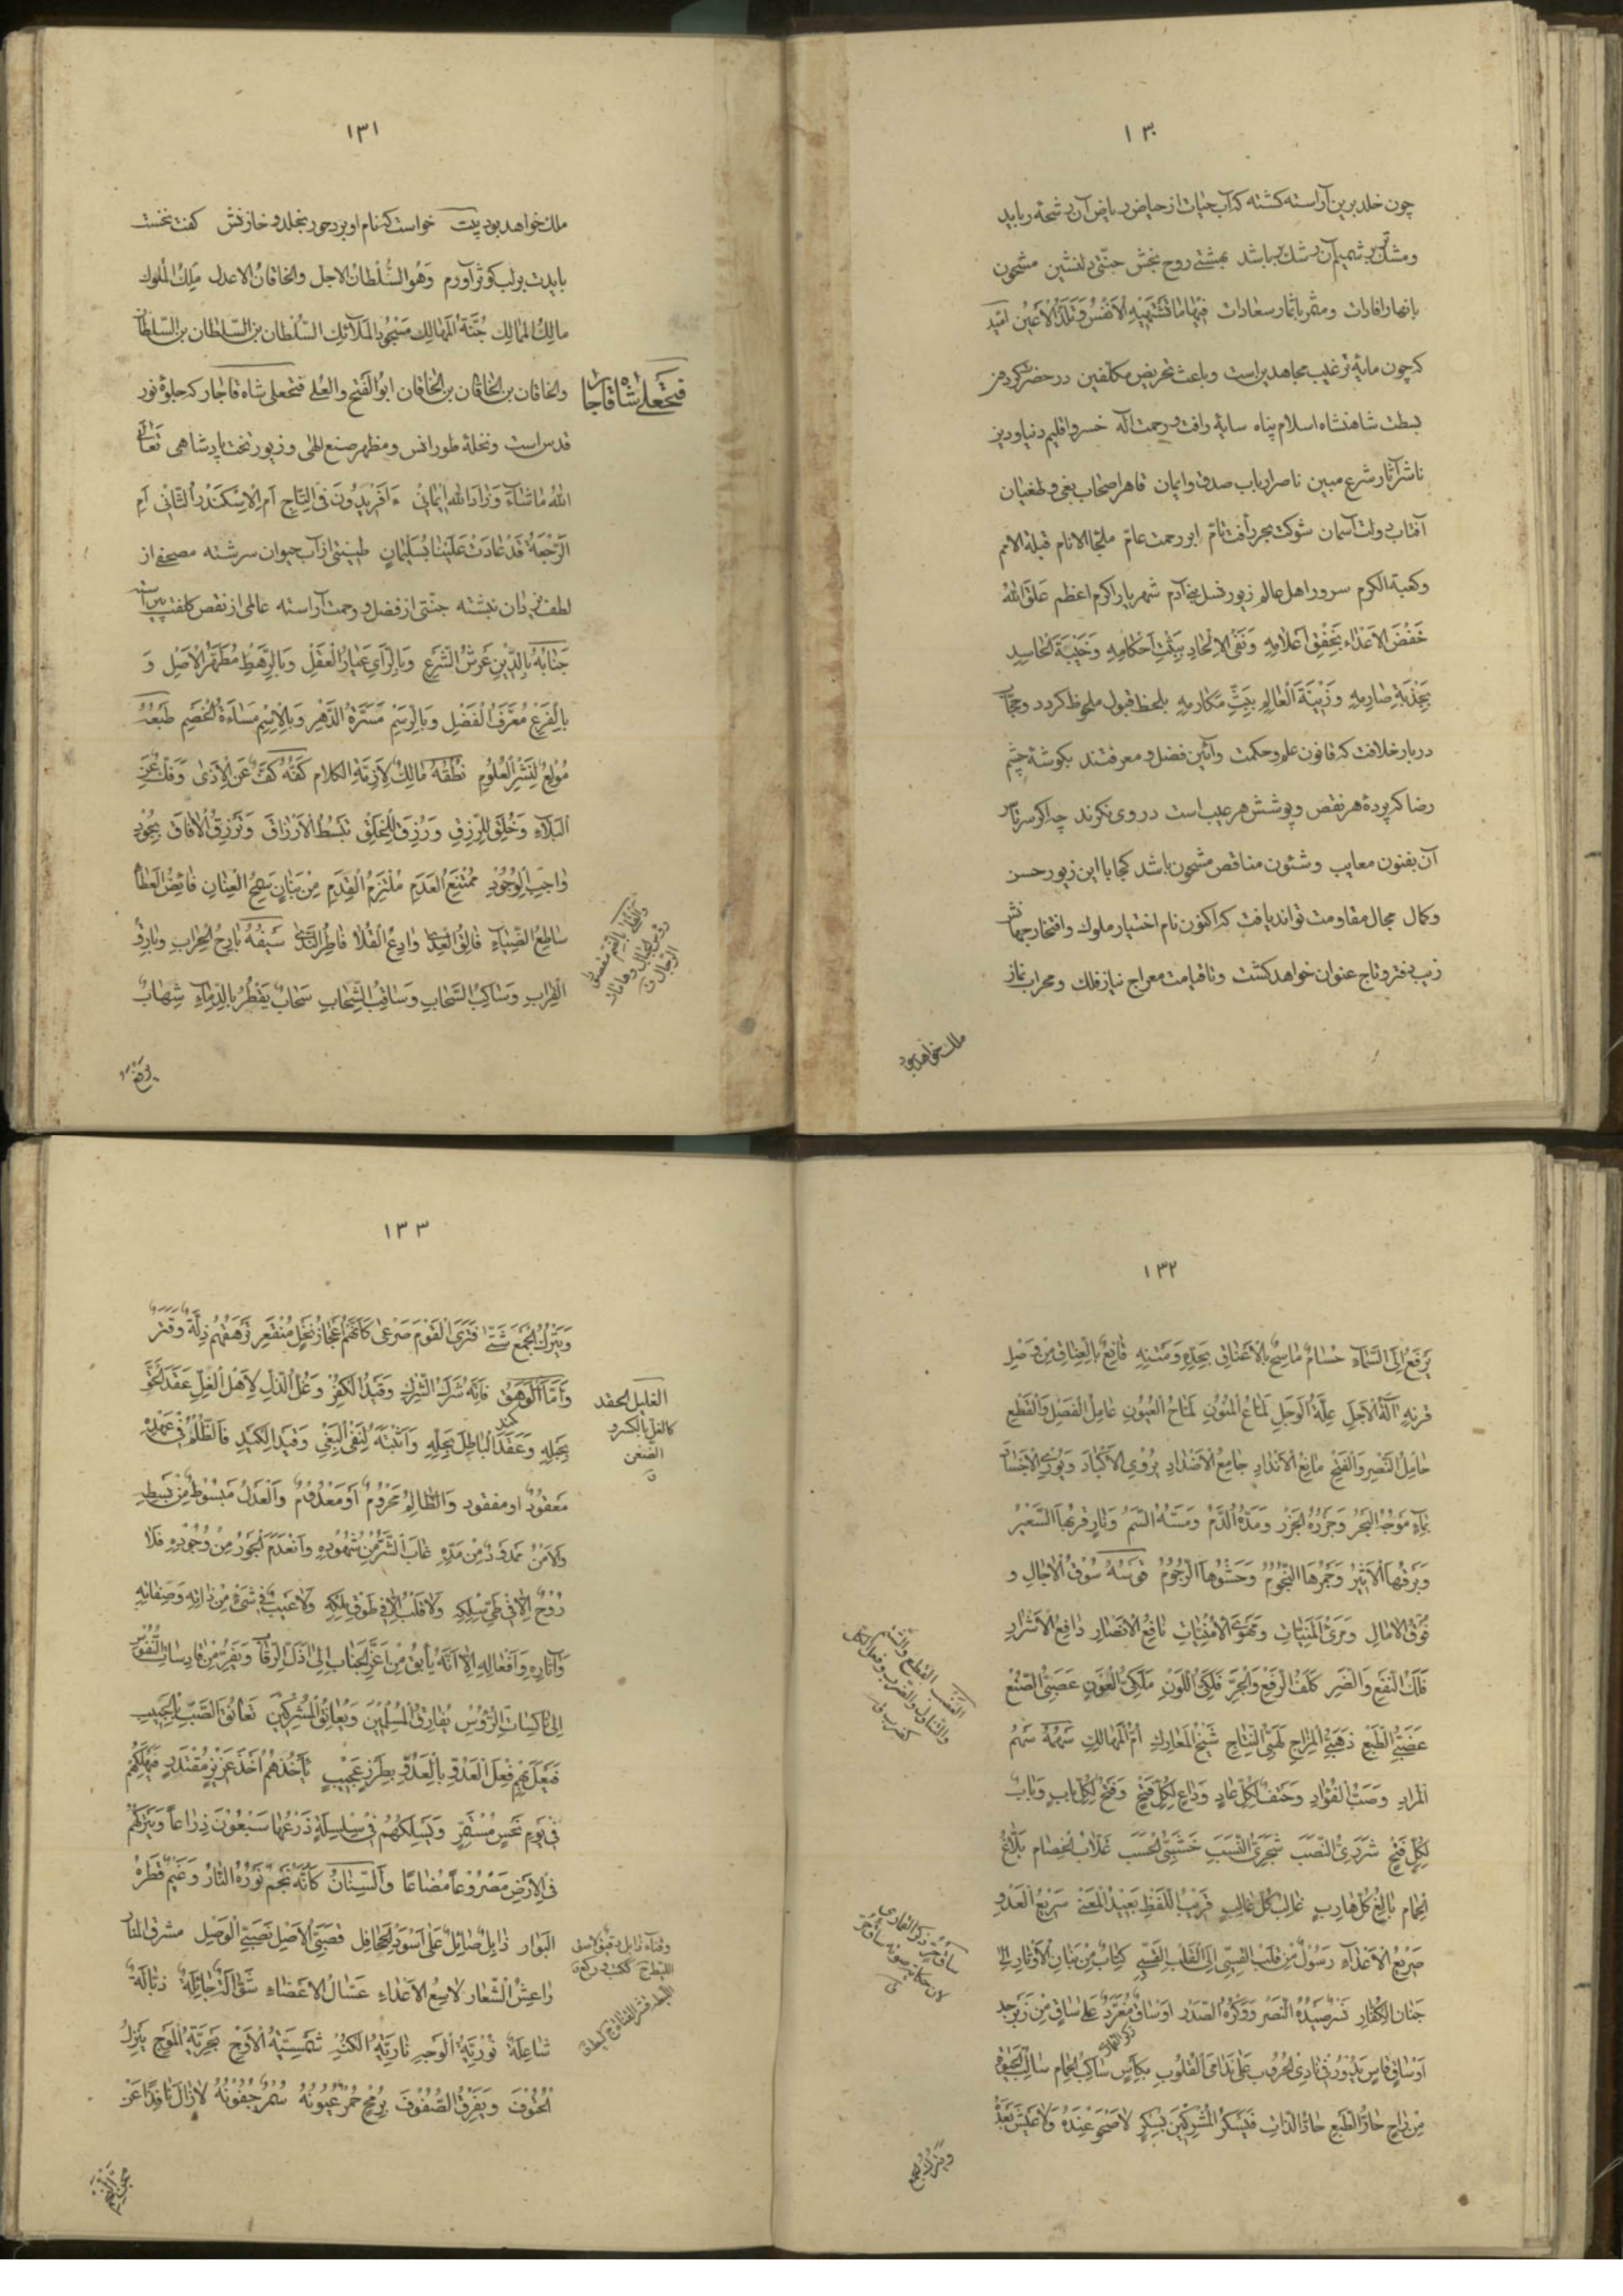 ١٣٠
چون خلد برین آراسته گشته که آب حیات از حیاض ریاض آن رشحهٔ رباید
ومشک تر شمیم آن رشک بر باشد بهشتی روح بخش جنّتی دلنشین مشحون
بانهار افادات ومثمر باثمار سعادات فِیهَا مَا تَشْتَهِیهِ الْاَنْفُسُ وَتَلَذُّ الْاَعْیُن امید
که چون مایهٔ ترغیب مجاهدین است وباعث تحریض مکلفین در حضرت گردون
بسطت شاهنشاه اسلام پناه سایهٔ رافت ورحمت اله خسرو اقلیم دنیا ودین
ناشر آثار شرع مبین ناصر ارباب صدق وایمان قاهر اصحاب بغی وطغیان
آفتاب دولت آسمان شوکت بحر رأفت تامّ ابر رحمت عامّ ملجأ الانام قبلة الامم
وکعبة الکرم سرور اهل عالم زیور نسل بنی آدم شهریار اکرم اعظم عَلَّقَ اللّٰهُ
خَفْضَ الاَعْدٰاءِ بِخَفْقِ اَعْلامِهِ وَنَفْیَ الاِلْحٰادِ بِبَثِّ اَحْکٰامِهِ وَخَیْبَةَ الْحٰاسِدِ
بِجَذْبَةِ صٰارِمِهِ وَزِیْنَةَ الْعٰالَمِ بِبَثِّ مَکٰارِمِهِ بلحظ قبول ملحوظ گردد وحجّاب
دربار خلافت که قانون علم وحکمت وآئین فضل ومعرفتند بگوشهٔ چشم
رضا که پردهٔ هر نقص وپوشش هر عیب است در وی نگرند چه اگر سرتاسر
آن بفنون معایب وشئون مناقص مشحون باشد کجا با این زیور حسن
وکمال مجال مقاومت تواند یافت که اکنون نام اختیار ملوک وافتخار جهانش
زیب دفتر وتاج عنوان خواهد گشت وتا قیامت معراج نیاز فلک ومحراب نماز
ملک خواهد بود
١٣١
ملک خواهد بود بیت خواست کز نام او برد حور بخلد در خازنش گفت نخست
بایدت بر لب کوثر آورم وَهُوَ السُّلْطٰانُ الاجل والخاقانُ الاعدل مَلِکُ الملوک
مالِکُ الممالِک جُنَّة المَهالِک مَسْجُودُ المَلائِک السّلطان بن السّلطان بن السّلطان
والخاقان بن الخاقان بن الخاقان ابو الفتح والعُلی فتحعلی شاه قاجار که جلوهٔ نور
فتحعلی شاه قاجار
قدس است ونخلهٔ طور انس ومظهر صنع الهی وزیور تخت پادشاهی تَعٰالَی
اللّٰهُ مٰا شٰاءَ وَزٰادَ اللّٰهُ اِیمٰانِی ءَاَفَرِیدُونَ فِی التّٰاجِ اَمِ الاِسْکَنْدَرُ الثّٰانِی اَمِ
الرَّجْعَةُ قَدْ عٰادَتْ عَلَیْنٰا بِسُلَیْمٰانٍ طینتی از آب حیوان سرشته مصحفی از
لطف یزدان نبشته جنّتی از فضل ورحمت آراسته عالمی از نقص کلفت پیراسته
جَنٰابُهُ بِالدِّیْنِ عَرْشُ الشَّرْعِ وَبِالرَّأیِ عَیٰارُ الْعَقْلِ وَبِالرَّهْطِ مُطَهَّرُ الْاَصْلِ وَ
بِالْفَرْعِ مُعَرَّفُ الْفَضْلِ وَبِالرَّسْمِ مَسَرَّةُ الدَّهْرِ وَبِالْاِسْمِ مَسٰاءَةُ الْخَصْمِ طَبْعُهُ
مُوْلَعٌ لِنَشْرِ الْعُلُومِ نُطْقُهُ مٰالِکٌ لِاَزِمَّةِ الکَلام کَفُّهُ کَفَّ عَنِ الْاَذٰی وَفَکَّ عَنِ
البَلاءِ وَخُلِقَ لِلرِّزْقِ وَرُزِقَ لِلْخَلْقِ تَبْسُطُ الْاَرْزٰاقَ وَتَرْزُقُ الْاٰفٰاقَ بِجُودٍ
وٰاجِبِ الوُجُودِ مُمْتَنِعِ الْعَدَمِ مُلْتَزِمِ الْقِدَمِ مِنْ بَنٰانٍ سَمْحِ الْعِنٰانِ فٰائِضِ الْعَطٰاءِ
سٰاطِعِ الضِّیٰاءِ فٰالِقِ الْعِدٰی وٰادِعِ الْقَلا فٰاطِرِ النَّدٰی سَیْفُهُ بٰارِحُ الْحِرٰابِ وَبٰارِقُ
القِرٰابِ وَسٰاکِبُ السَّحٰابِ وَسٰاقِبُ الشِّحٰابِ سَحٰابٌ یَقْطُرُ بِالدِّمٰاءِ شِهٰابٌ
یرفع
١٣٢
یَرْفَعُ اِلَی السَّمٰاءِ حُسٰامٌ مٰاسِحٌ بِالْاَعْنٰاقِ بِحَدِّهِ وَمَتْنِهِ قٰانِعٌ بِالْعِنٰاقِ مِنْ وَصْلِ
قِرْنِهِ اٰلَةُ الاَجَلِ عِلَّةُ الْوَجَلِ لَمّٰاعُ الْمَنُونِ لَمّٰاحُ الْعُیُونِ عٰامِلُ الْفَصْلِ وَالْقَطْعِ
حٰامِلُ النَّصْرِ وَالْفَتْحِ مٰانِعُ الْاَنْدٰادِ جٰامِعُ الْاَضْدٰادِ یُرْوِی الْاَکْبٰادَ وَیُورِی الْاَجْسٰادَ
بِمٰاءٍ مَوْجُهُ الْبَحْرُ وَجَزْرُهُ الْجَزْرُ وَمَدُّهُ الدَّمُ وَمَسُّهُ السَّمُّ وَنٰارٍ قُرْبُهَا السَّعِیْرُ
وَبَرْقُهَا الْاَثِیْرُ وَجَمْرُهَا النُّجُومُ وَحَشْوُهَا الرُّجُومُ قَوْسُهُ سُوقُ الْاٰجٰالِ وَ
فُوقُ الاٰمٰالِ وَمَرْمَی الْمَنِیّٰاتِ وَمَهْوَی الْاُمْنِیّٰاتِ نٰافِعُ الْاَنْصٰارِ دٰافِعُ الْاَشْرٰارِ
فَلَکُ النَّفْعِ وَالضَّرِ کَلَفُ الرَّفْعِ وَالْجَرِّ فَلَکِیُّ اللَّوْنِ مَلَکِیُّ الْعَوْنِ عَصَبِیُّ الصُّنْعِ
غَضَبِیُّ الطَّبْعِ ذَهَبِیُّ الْمِزٰاجِ لَهَبِیُّ النِّتٰاجِ شَیْخُ الْمَعٰارِکِ اُمُّ الْمَهٰالِکِ سَهْمُهُ سَهْمُ
المُرٰادِ وَصَبُّ الْفُؤٰادِ وَحَتْفٌ لِکُلِّ عٰادٍ وَدٰاعٍ لِکُلِّ فَتْحٍ وَفَتْحٌ لِکُلِّ بٰابٍ وَبٰابٌ
لِکُلِّ فَتْحٍ شَرَرِیُّ النَّصَبِ شَجَرِیُّ النَّسَبِ خَشَبِیُّ الْحَسَبِ غَلّابُ الْخِصٰام بَلّاغُ
الْحِمٰامِ بٰالِغُ کُلِّ هٰارِبٍ غٰالِبُ کُلِّ غٰالِبٍ قَرِیْبُ اللَّفْظِ بَعِیْدُ الْمَعْنٰی سَرِیْعُ الْعَدْوِ
صَرِیْعُ الاَعْدٰاءِ رَسُولٌ مِنْ قَلْبِ الْقِسِیِّ اِلَی الْقَلْبِ الْقَسِیِّ کِتٰابٌ مِنْ بَنٰانِ الْاَوْتٰارِ اِلٰی
جَنٰانِ الْکُفّٰارِ نَسْرٌ صَیْدُهُ النَّصْرُ وَوَکْرُهُ الصَّدْرُ اَوْ سٰاقٌ مُغَرِّدٌ عَلٰی سٰاقٍ مِنْ زَبَرْجَدٍ
اَوْ سٰاقٍ قٰاسٍ یَدُوْرُ فِی نٰادِی الْحُرُوبِ عَلٰی نَدٰامَی الْقُلُوبِ بِکَأْسٍ سٰاکِبِ الْحِمٰامِ سٰالِبِ الْحَیٰوةِ
مِنْ رٰاحٍ حٰارِّ الطَّبْعِ حٰادِّ الذّٰاتِ فَیُسْکِرُ الْمُشْرِکِیْنَ بِسُکْرٍ لٰا صَحْوَ عِنْدَهُ وَلٰا عَیْشَ بَعْدَهُ
القضب القطع والشتم
والتناول والضرب وفعل الکل
کضرب ق
ساق حُرّ ذکر القماری
لان حکایة صوته ساق حُرّ
ق
ذکر القماری
ویترک الجمع
١٣٣
وَیَتْرُکُ الْجَمْعَ شَتّٰی فَتَرَی الْقَوْمَ صَرْعٰی کَاَنَّهُمْ اَعْجٰازُ نَخْلٍ مُنْقَعِرٍ تَرْهَقُهُمْ ذِلَّةٌ وَقَتَرٌ
وَاَمَّا الْوَهَقُ فَاِنَّهُ شَرَکُ الشِّرْکِ وَقَیْدُ الْکُفْرِ وَغُلُّ الذُّلِّ لِاَهْلِ الْغِلِّ عَقَدَ الْحَقَّ
بِحَبْلِهِ وَعَقَدَ الْبٰاطِلَ بِحَبْلِهِ وَاَثْبَتَهُ لِنَفْیِ الْبَغْیِ وَقَیْدِ الْکَیْدِ فَالظُّلْمُ فِی عَهْدِهِ
مَعقُودٌ او مفقود وَالظّٰالِمُ مَحْرُومٌ اَوْ مَعْدُومٌ وَالْعَدْلُ مَبْسُوطٌ مِنْ بَسْطِهِ
وَالْاَمْنُ مَمْدُودٌ مِنْ مَدِّهِ غٰابَ الشَّرُّ مِنْ شُهُودِهِ وَانْعَدَمَ الْجَوْرُ مِنْ وُجُوْدِهِ فَلا
رُوْحٌ اِلّا فِی طَیِّ سِلْکِهِ وَلا قَلْبٌ اِلّا فِی طَوْقِ مِلْکِهِ وَلا عَیْبَ فِی شَیْءٍ مِنْ ذٰاتِهِ وَصِفٰاتِهِ
وَاٰثٰارِهِ وَاَفْعٰالِهِ اِلّا اَنَّهُ یَأْبِقُ مِنْ اَعَزِّ الْجَنٰابِ اِلٰی اَذَلِّ الرِّقٰابِ وَیَفِرُّ مِنْ فٰارِسٰاتِ النُّفُوسِ
اِلٰی نٰاکِسٰاتِ الرُّؤُسِ یُفٰارِقُ الْمُسْلِمِیْنَ وَیُعٰانِقُ الْمُشْرِکِیْنَ تَعٰانُقَ الصَّبِّ بِالْحَبِیبِ
فَیَفْعَلُ بِهِمْ فِعْلَ الْعَدُوِّ بِالْعَدُوِّ بِطَرْزٍ عَجِیْبٍ یَأْخُذُهُمْ اَخْذَ عَزِیْزٍ مُقْتَدِرٍ فَیُهْلِکُهُمْ
فِی یَوْمِ نَحْسٍ مُسْتَمِرٍّ وَیَسْلُکُهُمْ فِی سِلْسِلَةٍ ذَرْعُهٰا سَبْعُوْنَ ذِرٰاعاً وَیَتْرُکُهُمْ
فِی الاَرْضِ مَصْرُوْعاً مُضٰاعاً وَالسِّنٰانُ کَاَنَّهُ نَجْمٌ نَوْرُهُ النّٰارُ وَغَیْمٌ قَطْرُهُ
البَوٰار ذٰابِلٌ صٰائِلٌ عَلٰی اُسُودِ الْجَحٰافِل قَصَبِیُّ الْاَصْلِ نَصَبِیُّ الْوَصْلِ مشرق المنار
رٰاعِشُ الشِّعٰار لٰاسِعُ الْاَعْدٰاءِ عَسّٰالُ الاَعْضٰاءِ شَقَّ الَّتْ جٰائِلَةٌ ذُبٰالَةٌ
شٰاعِلَةٌ نُوْرِیَّةُ الْوَجْهِ نٰارِیَّةُ الْکُنْهِ شَمْسِیَّةُ الْاَوْجِ بَحْرِیَّةُ الْمَوْجِ یُنْزِلُ
الْحُتُوْفَ وَیُفَرِّقُ الصُّفُوْفَ بِرُمْحٍ حُمْرٌ عُیُونُهُ سُمْرٌ جُفُونُهُ لٰا زٰالَ نٰافِذاً عَنْ
الغلیل الحقد
کالغل بالکسر و
الضغن
ق
کمند